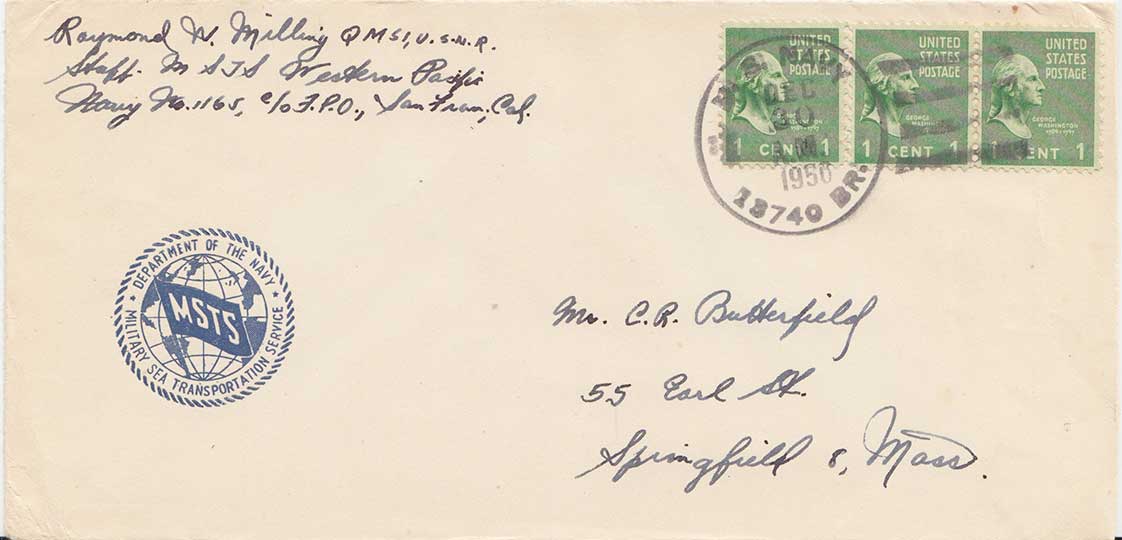 Raymond W. Milling QMS1, U.S.N.R.
Staff. M S T S Western Pacific
Navy No. 1165, c/o F.P.O., San Fran, Cal.
UNITED STATES POSTAGE
GEORGE WASHINGTON
1 CENT 1
UNITED STATES POSTAGE
GEORGE WASHINGTON
1 CENT 1
UNITED STATES POSTAGE
GEORGE WASHINGTON
1789-1797
CENT 1
U.S. NAVY
DEC
1950
13740 BR.
DEPARTMENT OF THE NAVY
MSTS
MILITARY SEA TRANSPORTATION SERVICE
Mr. C.R. Butterfield
55 Earl St.
Springfield 8, Mass.